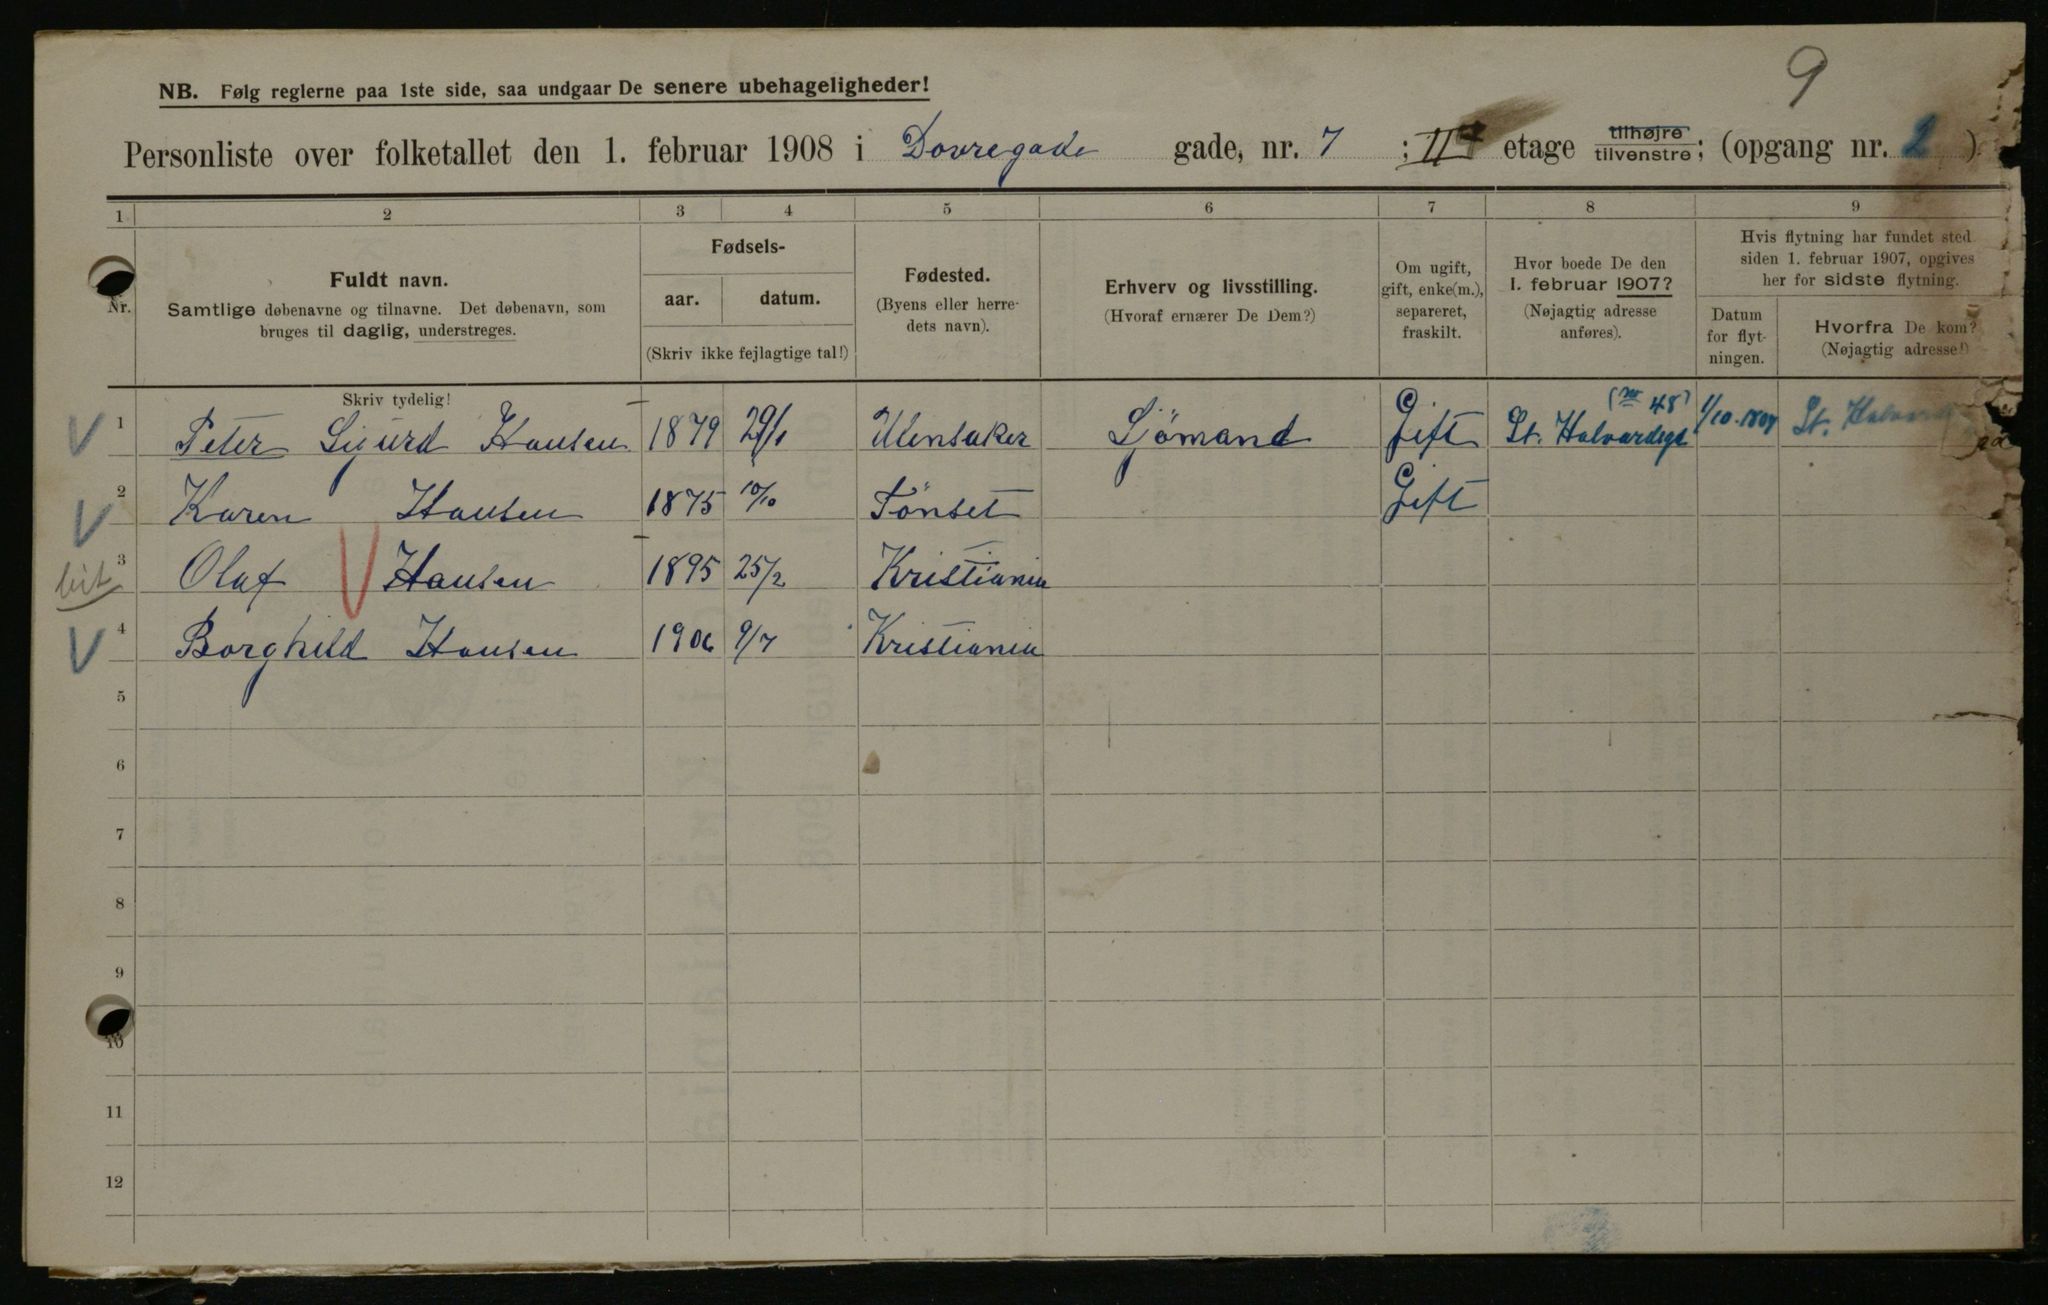 9
NB. Følg reglerne paa 1ste side, saa undgaar De senere ubehageligheder!
Personliste over folketallet den 1. februar 1908 i Dovregade gade, nr. 7 ; II etage tilhøjre tilvenstre; (opgang nr. 2 ).
1 2 3 4 5 6 7 8 9
Nr.
Fuldt navn.
Samtlige døbenavne og tilnavne. Det døbenavn, som
bruges til daglig, understreges.
Fødsels-
aar. datum.
(Skriv ikke fejlagtige tal!)
Fødested.
(Byens eller herre-
dets navn).
Erhverv og livsstilling.
(Hvoraf ernærer De Dem?)
Om ugift,
gift, enke(m.),
separeret,
fraskilt.
Hvor boede De den
1. februar 1907?
(Nøjagtig adresse
anføres).
Hvis flytning har fundet sted
siden 1. februar 1907, opgives
her for sidste flytning.
Datum
for flyt-
ningen.
Hvorfra De kom?
(Nøjagtig adresse!)
Skriv tydelig!
1 Peter Sigurd Hansen 1879 29/1 Ulensaker Sjömand Gift St. Halvardsgt (nr 48) 1/10-1907 St. Halvards
2 Karen Hansen 1875 10/10 Tönset Gift
3 Olaf Hansen 1895 25/2 Kristiania
4 Borghild Hansen 1906 9/7 Kristiania
5
6
7
8
9
10
11
12